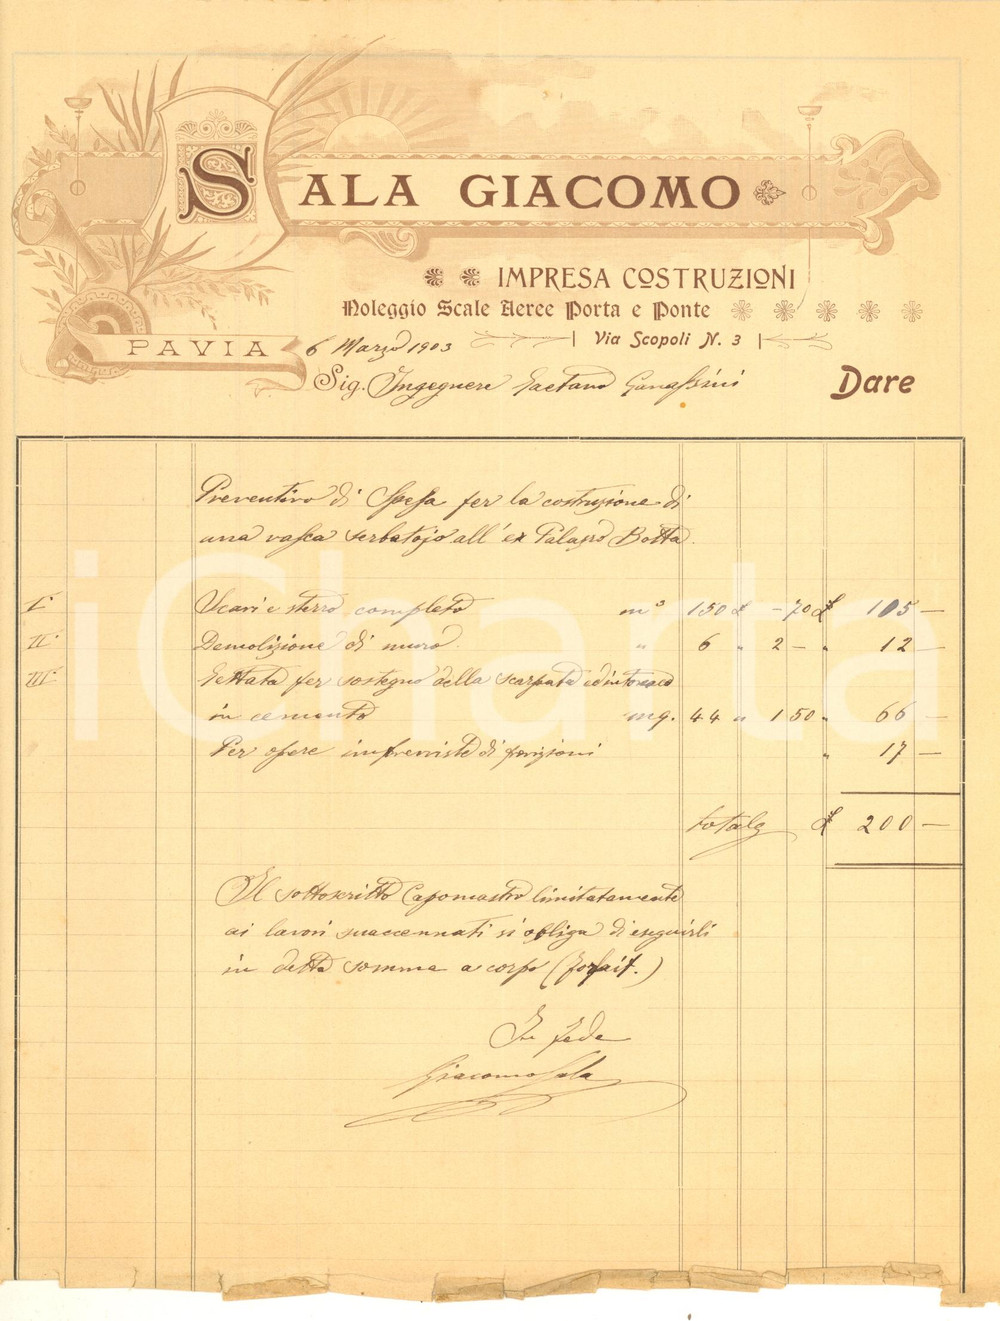 SALA GIACOMO
IMPRESA COSTRUZIONI
Noleggio Scale Aeree Porta e Ponte
Via Scopoli N. 3
PAVIA
6 Marzo 1903
Sig. Ingegnere Gaetano Ganassini
Dare
Preventivo di Spesa per la costruzione di
una vasca serbatojo all' ex Palazzo Botta.
I° Scavi e sterro completo m³ 150 £ - 70 £ 105 —
II° Demolizione di muro. " 6 " 2 - " 12 —
III° Gettata per sostegno della scarpata ed intonaco
in cemento mq. 44 " 1 50 " 66 —
Per opere impreviste di " 17 —
totale £ 200 —
Il sottoscritto Capomastro limitatamente
ai lavori suaccennati si obliga di eseguirli
in detta somma a corpo (forfait.)
In fede
Giacomo Sala
iCharta